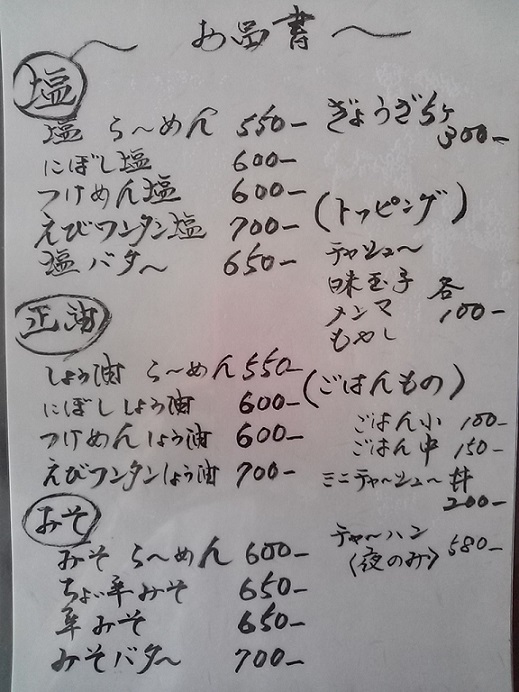 〜 お品書 〜
塩
塩 ら〜めん 550−
にぼし塩 600−
つけめん塩 600−
えびワンタン塩 700−
塩バタ〜 650−
正油
しょう油 ら〜めん 550−
にぼし しょう油 600−
つけめん しょう油 600−
えびワンタン しょう油 700−
みそ
みそ ら〜めん 600−
ちょい辛みそ 650−
辛みそ 650−
みそバタ〜 700−
ぎょうざ5ヶ
300−
(トッピング)
チャーシュ〜
味玉子
メンマ
もやし
各
100−
(ごはんもの)
ごはん小 100−
ごはん中 150−
ミニチャーシュ〜丼
200−
チャーハン
(夜のみ) 580−